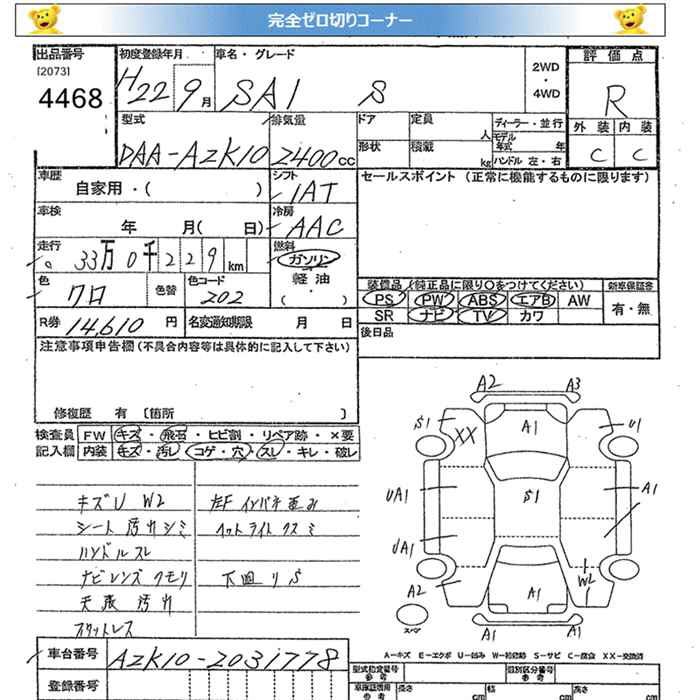 完全ゼロ切りコーナー
出品番号 初度登録年月 車名・グレード 2WD・4WD 評価点
[2073]
4468 H22 9月 SAI S R
外装 内装
C C
型式 排気量 ドア 定員 人 ディーラー・並行
DAA-AZK10 2400cc 形状 積載 kg モデル年式 年 ハンドル 左・右
車歴 自家用・( ) シフト IAT セールスポイント (正常に機能するものに限ります)
車検 年 月( 日) 冷房 AAC
走行 33万0千229km 燃料 ガソリン・軽油・( )
色 クロ 色替 色コード 202
装備品 (純正品に限り○をつけてください) 新車保証書
PS PW ABS エアB AW 有・無
SR ナビ TV カワ
R券 14,610円 名変通知期限 月 日 後日品
注意事項申告欄(不具合内容等は具体的に記入して下さい)
修復歴 有 [箇所 ]
検査員 FW キズ・飛石・ヒビ割・リペア跡・×要
記入欄 内装 キズ・汚レ・コゲ・穴・スレ・キレ・破レ
キズU W2 左F インパネ歪み
シート汚れシミ ヘットライトクスミ
ハンドルスレ
ナビレンズクモリ 下廻りS
天張汚れ
スタットレス
A2 A3
S1 XX A1 U1
UA1 S1 A1
UA1
A2 A1 W2
スペア
A1 A1
車台番号 AZK10-2031778
A-キズ E-エクボ U-凹み W-補修跡 S-サビ C-腐食 XX-交換済
登録番号 型式指定番号 参考 類別区分番号 参考
車検証請用 参考 長さ cm 幅 cm 高さ cm